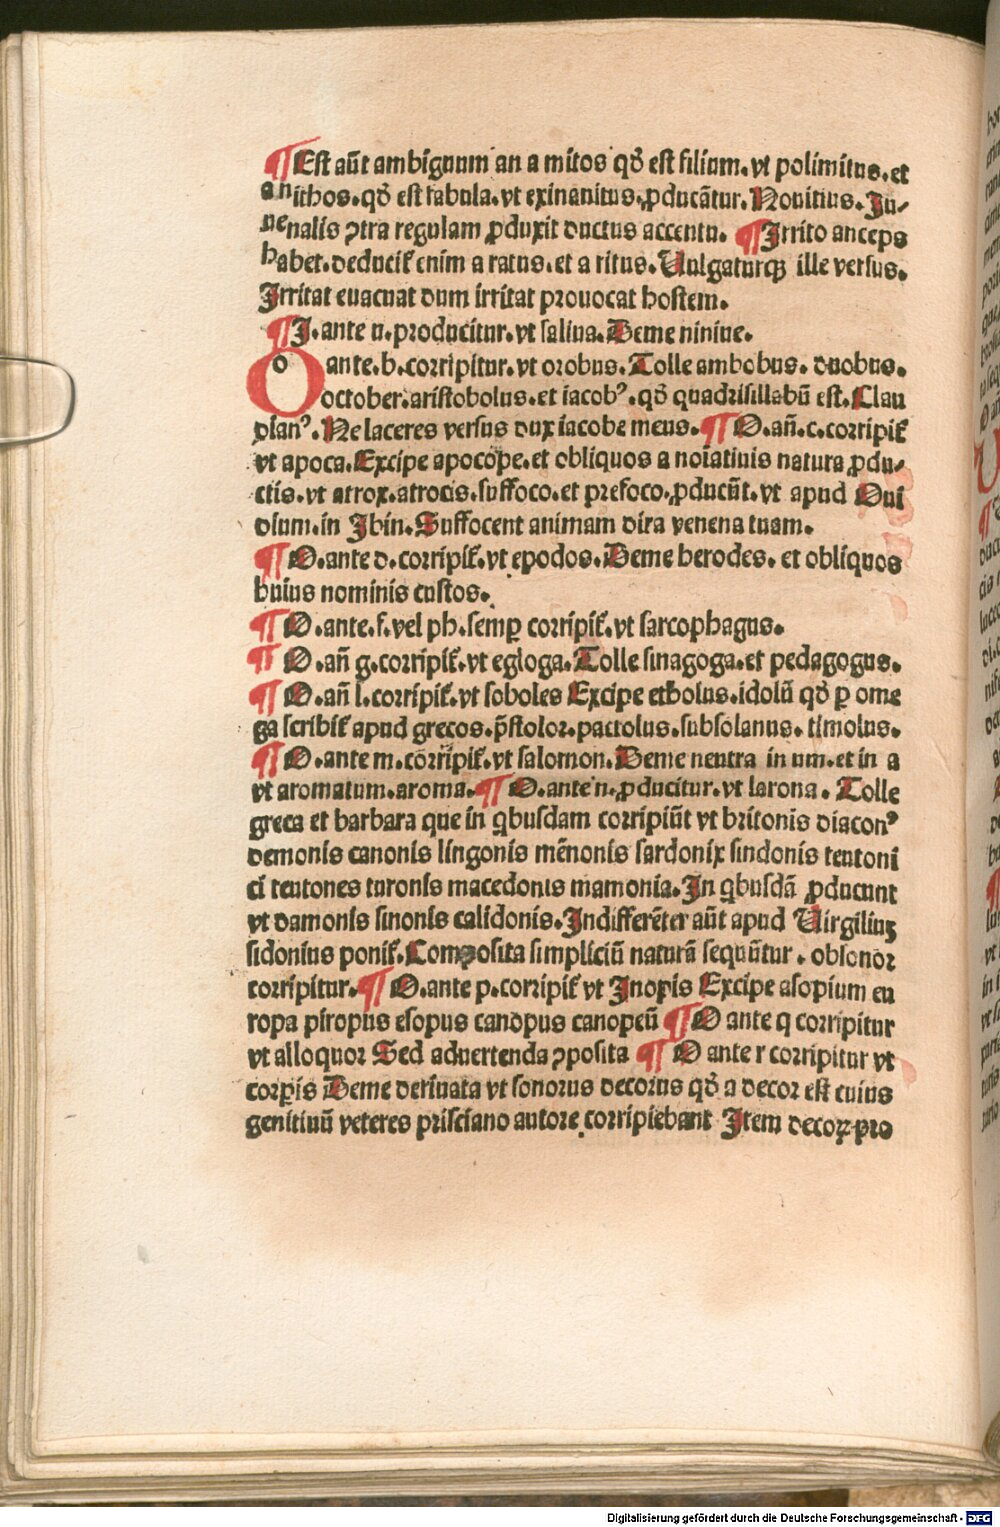 ¶ Est aūt ambiguum an a mitos qd̄ est filium. vt polimitus. et
anithos. qd̄ est fabula. vt exinanitus. ꝓducāt̄ur. Nouitius. Ju-
uenalis ꝯtra regulam ꝓduxit ductus accentu. ¶ Jrrito anceps
habet. deduciť enim a ratus. et a ritus. Uulgaturqꝫ ille versus.
Jrritat euacuat dum irritat prouocat hostem.
¶ J. ante u. producitur. vt saliua. Deme niniue.
O ante. b. corripitur. vt orobus. Tolle ambobus. duobus.
october. aristobolus. et iacobꝰ. qd̄ quadrisillabū est. Clau
dianꝰ. Ne laceres versus dux iacobe meus. ¶ O. añ. c. corripiť
vt apoca. Excipe apocope. et obliquos a noīatiuis natura ꝓdu-
ctis. vt atrox. atrocis. suffoco. et prefoco. ꝓducūt. vt apud Oui
dium. in Jbin. Suffocent animam dira venena tuam.
¶ O. ante d. corripiť. vt epodos. Deme herodes. et obliquos
huius nominis custos.
¶ O. ante. f. vel ph. semꝑ corripiť. vt sarcophagus.
¶ O. añ g. corripiť. vt egloga. Tolle sinagoga. et pedagogus.
¶ O. añ l. corripiť. vt soboles Excipe etholus. idolū qd̄ ꝑ ome
ga scribiť apud grecos. p̄stolor. pactolus. subsolanus. timolus.
¶ O. ante m. corripiť. vt salomon. Deme neutra in um. et in a
vt aromatum. aroma. ¶ O. ante n. ꝓducitur. vt larona. Tolle
greca et barbara que in qͥbusdam corripiūt vt britonis diaconꝰ
demonis canonis lingonis mēnonis sardonix sindonis teutoni
ci teutones turonis macedonis mamonia. Jn qͥbusdā ꝓducunt
vt damonis sinonis calidonis. Jndifferēter aūt apud Uirgiliuꝫ
sidonius poniť. Composita simpliciū naturā sequūtur. obsonor
corripitur. ¶ O. ante p. corripiť vt Jnopis Excipe asopium eu
ropa piropus esopus canopus canopeū ¶ O ante q corripitur
vt alloquor Sed aduertenda ꝯposita ¶ O ante r corripitur vt
corꝑis Deme deriuata vt sonorus decorus qd̄ a decor est cuius
genitiuū veteres prisciano autore corripiebant Jtem decoꝝ pro
Digitalisierung gefördert durch die Deutsche Forschungsgemeinschaft - DFG